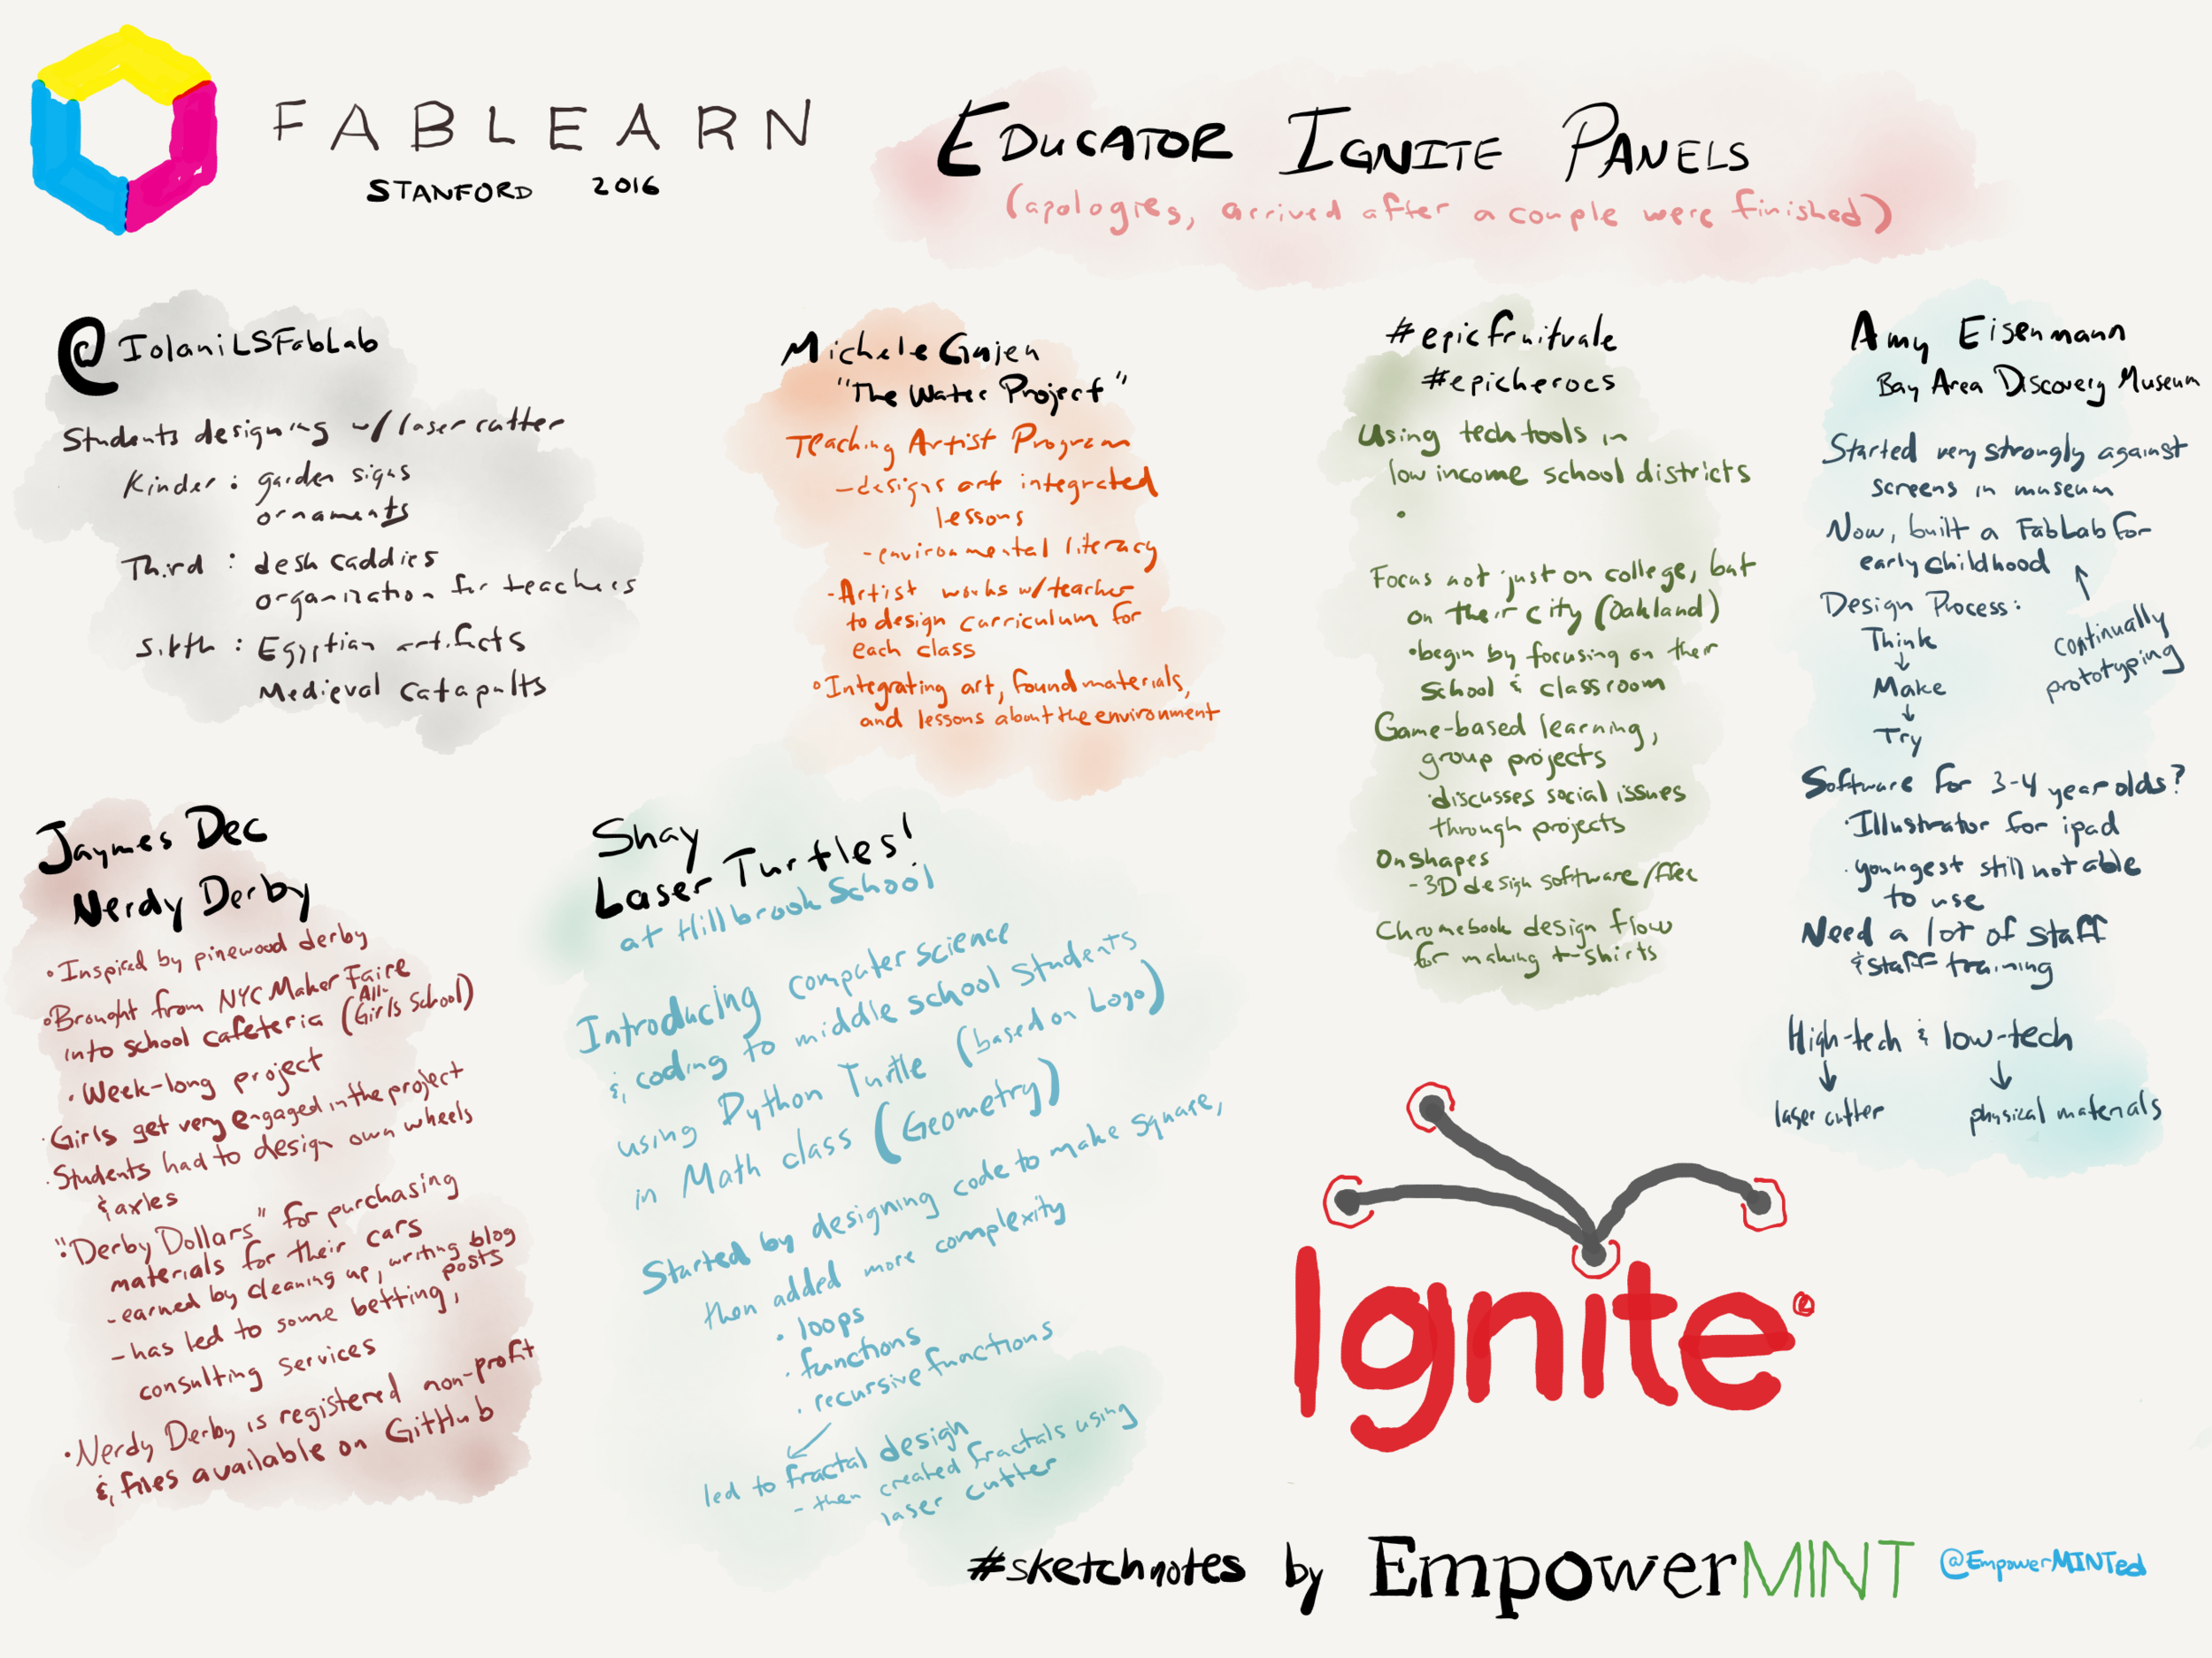 FABLEARN
STANFORD 2016
EDUCATOR IGNITE PANELS
(apologies, arrived after a couple were finished)
@IolaniLSFabLab
Students designing w/ laser cutter
Kinder: garden signs
ornaments
Third: desk caddies
organization for teachers
Sixth: Egyptian artifacts
Medieval catapults
Michele
"The Water Project"
Teaching Artist Program
- designs art integrated
lessons
- environmental literacy
- Artist works w/ teacher
to design curriculum for
each class
• Integrating art, found materials,
and lessons about the environment
#epicfruitvale
#epicheroes
Using tech tools in
low income school districts
•
Focus not just on college, but
on their city (Oakland)
• begin by focusing on their
school & classroom
Game-based learning,
group projects
· discusses social issues
through projects
OnShapes
- 3D design software/free
Chromebook design flow
for making t-shirts
Amy Eisenmann
Bay Area Discovery Museum
Started very strongly against
screens in museum
Now, built a FabLab for
early childhood
continually
prototyping
Design Process:
Think
↓
Make
↓
Try
Software for 3-4 year olds?
· Illustrator for ipad
· youngest still not able
to use
Need a lot of staff
& staff training
High-tech & low-tech
laser cutter
physical materials
Jaymes Dec
Nerdy Derby
• Inspired by pinewood derby
• Brought from NYC Maker Faire
into school cafeteria (All-Girls School)
· Week-long project
· Girls get very engaged in the project
· Students had to design own wheels
& axles
· "Derby Dollars" for purchasing
materials for their cars
- earned by cleaning up, writing blog
posts
- has led to some betting,
consulting services
· Nerdy Derby is registered non-profit
& files available on GitHub
Shay
Laser Turtles!
at Hillbrook School
Introducing computer science
& coding to middle school students
using Python Turtle (based on Logo)
in Math class (Geometry)
Started by designing code to make square,
then added more complexity
· loops
· functions
· recursive functions
led to fractal design
- then created fractals using
laser cutter
Ignite
#sketchnotes by EmpowerMINT @EmpowerMINTed